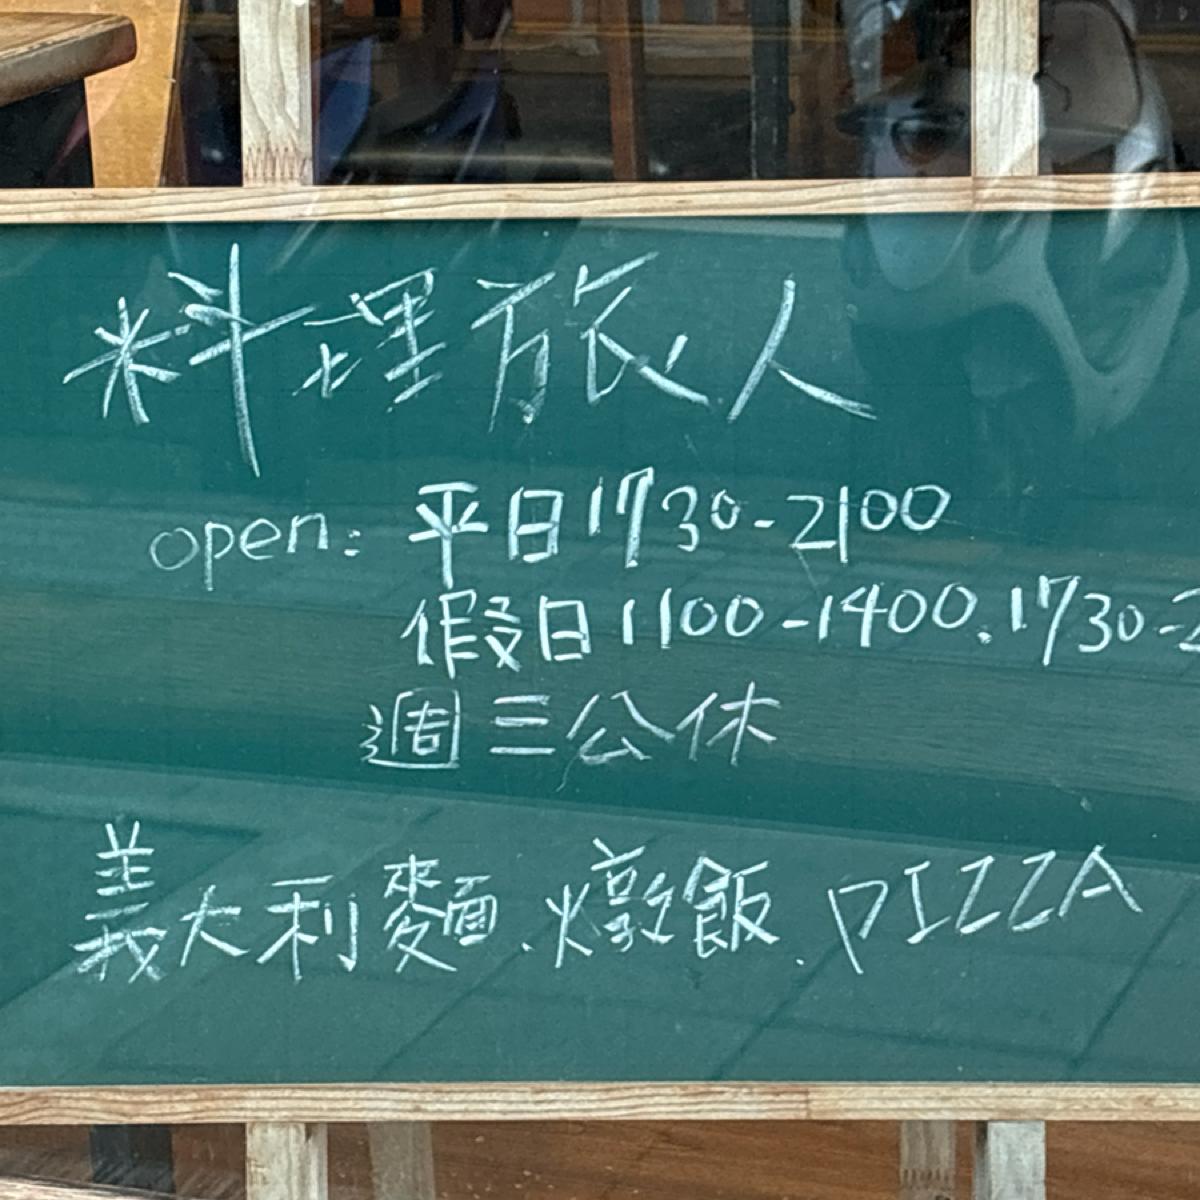 料理旅人
open: 平日1730-2100
假日1100-1400.1730-2
週三公休
義大利麵.燉飯.PIZZA